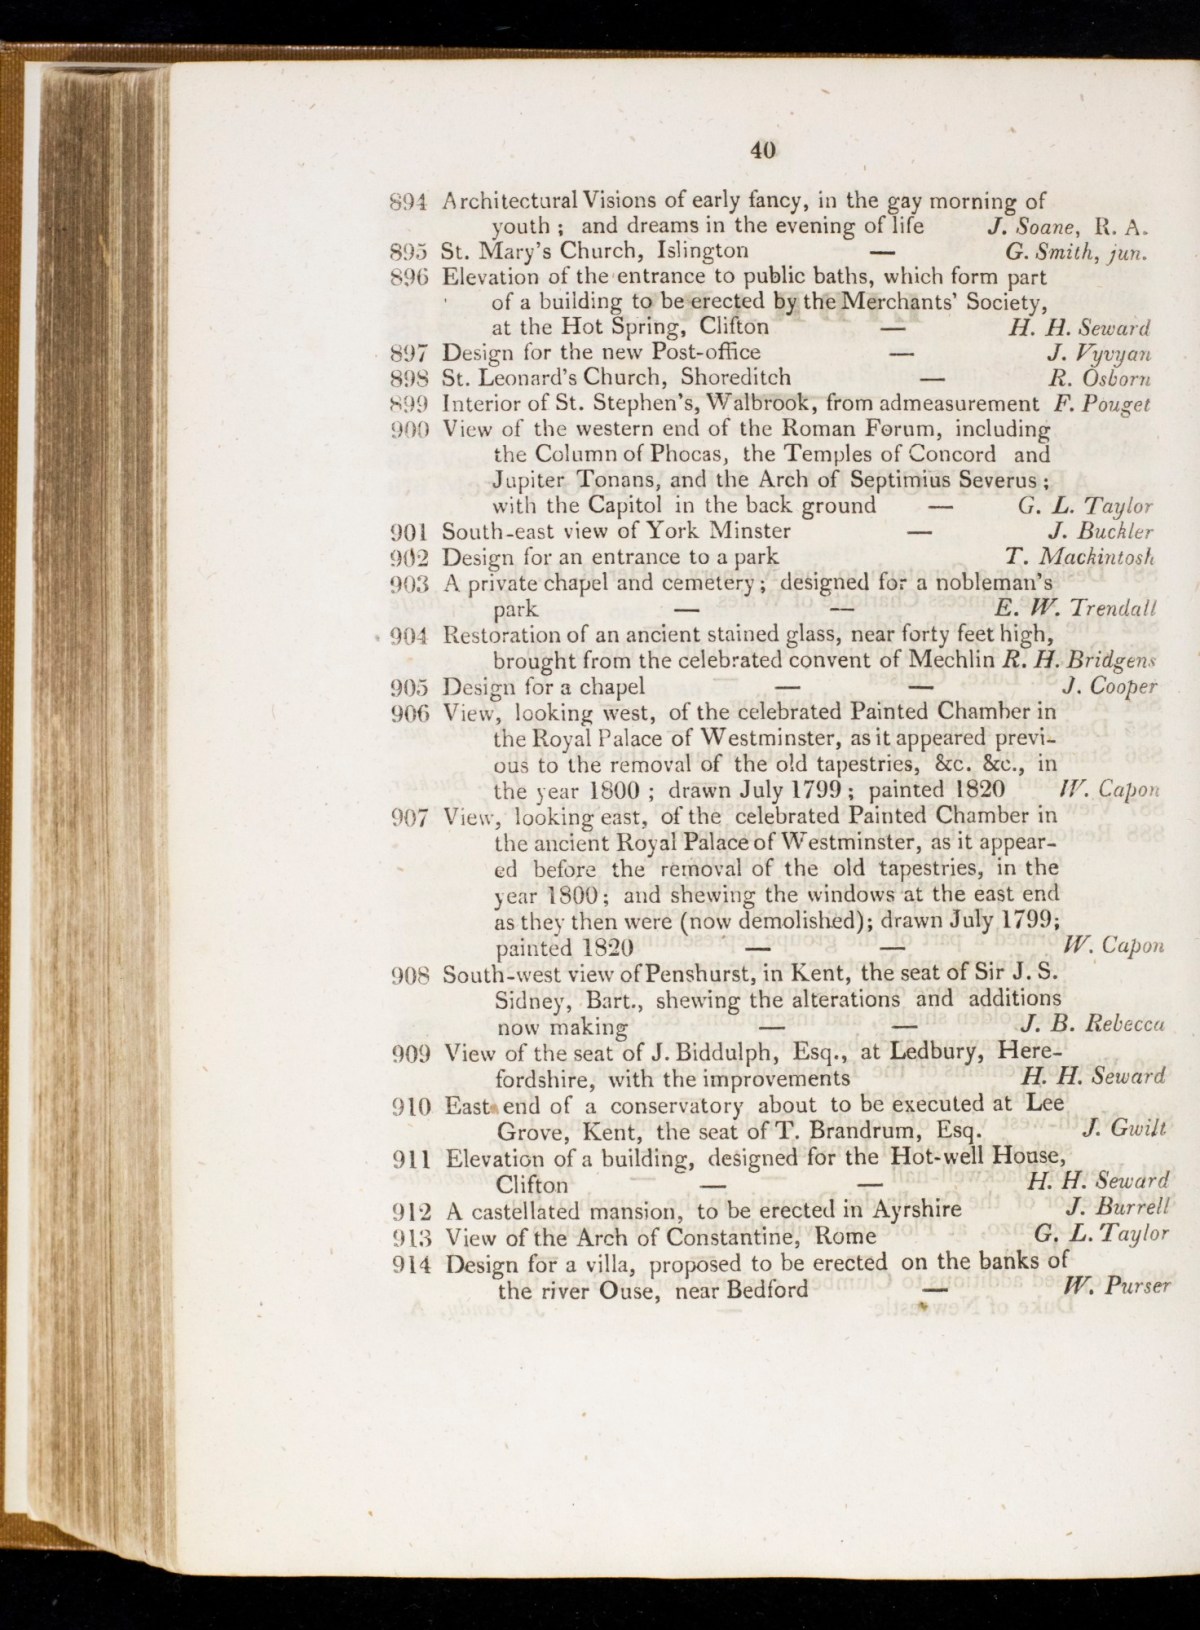 40
894 Architectural Visions of early fancy, in the gay morning of
youth ; and dreams in the evening of life J. Soane, R. A.
895 St. Mary's Church, Islington — G. Smith, jun.
896 Elevation of the entrance to public baths, which form part
of a building to be erected by the Merchants' Society,
at the Hot Spring, Clifton — H. H. Seward
897 Design for the new Post-office — J. Vyvyan
898 St. Leonard's Church, Shoreditch — R. Osborn
899 Interior of St. Stephen's, Walbrook, from admeasurement F. Pouget
900 View of the western end of the Roman Forum, including
the Column of Phocas, the Temples of Concord and
Jupiter Tonans, and the Arch of Septimius Severus ;
with the Capitol in the back ground — G. L. Taylor
901 South-east view of York Minster — J. Buckler
902 Design for an entrance to a park T. Mackintosh
903 A private chapel and cemetery ; designed for a nobleman's
park — — E. W. Trendall
904 Restoration of an ancient stained glass, near forty feet high,
brought from the celebrated convent of Mechlin R. H. Bridgens
905 Design for a chapel — — J. Cooper
906 View, looking west, of the celebrated Painted Chamber in
the Royal Palace of Westminster, as it appeared previ-
ous to the removal of the old tapestries, &c. &c., in
the year 1800 ; drawn July 1799 ; painted 1820 W. Capon
907 View, looking east, of the celebrated Painted Chamber in
the ancient Royal Palace of Westminster, as it appear-
ed before the removal of the old tapestries, in the
year 1800; and shewing the windows at the east end
as they then were (now demolished); drawn July 1799;
painted 1820 — — W. Capon
908 South-west view of Penshurst, in Kent, the seat of Sir J. S.
Sidney, Bart., shewing the alterations and additions
now making — — J. B. Rebecca
909 View of the seat of J. Biddulph, Esq., at Ledbury, Here-
fordshire, with the improvements H. H. Seward
910 East end of a conservatory about to be executed at Lee
Grove, Kent, the seat of T. Brandrum, Esq. J. Gwilt
911 Elevation of a building, designed for the Hot-well House,
Clifton — — H. H. Seward
912 A castellated mansion, to be erected in Ayrshire J. Burrell
913 View of the Arch of Constantine, Rome G. L. Taylor
914 Design for a villa, proposed to be erected on the banks of
the river Ouse, near Bedford — W. Purser